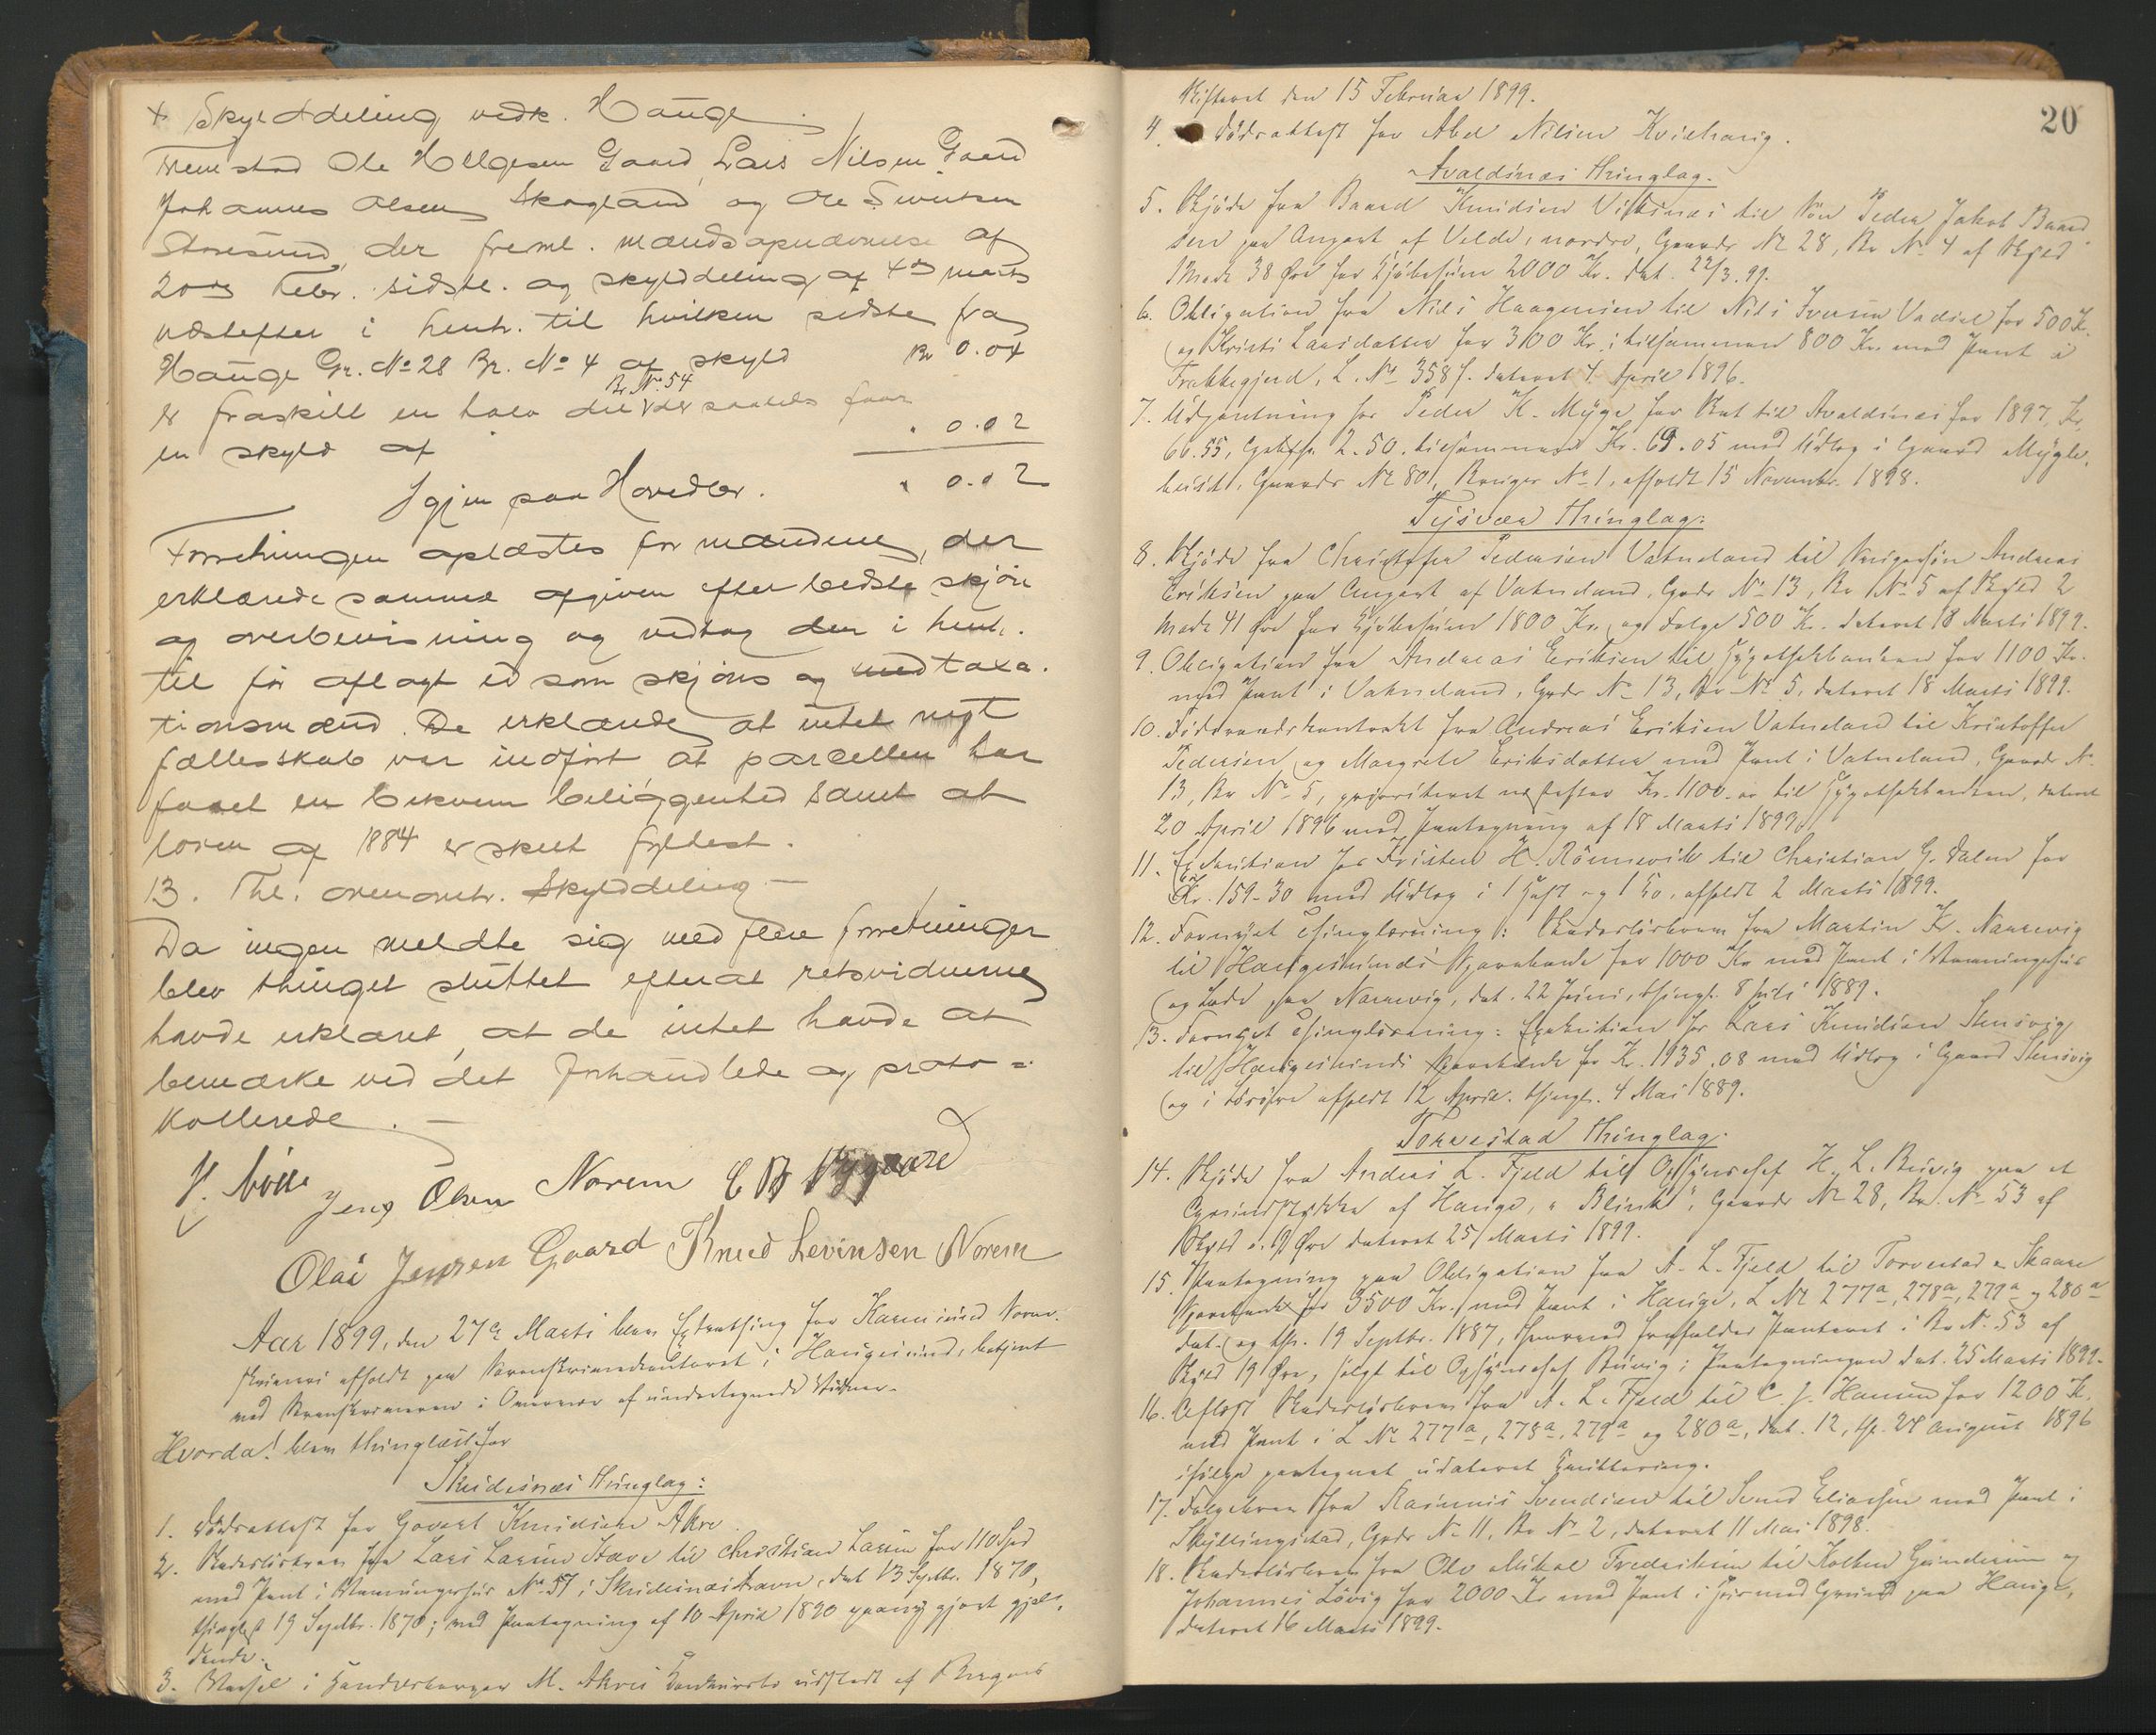 + Skylddeling vedk. Hauge.
Fremstod Ole Helgesen Gaard, Lars Nilsen Gaard
Johannes Olsen Skogland og Ole Sivertsen
Storesund, der freml. mandsopnævnelse af
20de Febr. sidstl. og skylddeling af 4de marts
næstefter i henh. til hvilken sidste fra
Hauge Gr. No 28 Br. No 4 af skyld Kr 0.04
Br. No. 54
er fraskilt en halv del der saaledes faar
en skyld af " 0.02
Igjen paa Hovedbr. " 0.02
Forretningen oplæstes for mændene, der
erklærede samme afgiven efter bedste skjøn
og overbevisning og vedtog den i henh.
til før aflagt ed som skjøns og med taxa-
tionsmænd. De erklærede at intet nyt
fællesskab var indført at parcellen har
faaet en bekvem beliggenhed samt at
loven af 1884 er skeet fyldest.
13. Thl. ovenomh. Skylddeling —
Da ingen meldte sig med flere forretninger
blev thinget sluttet efterat retsvidnerne
havde erklæret, at de intet havde at
bemærke ved det forhandlede og proto-
kollerede. —
Jens Olsen Norem
Olai Jensen Gaard Knud Levinsen Norem
Aar 1899, den 27de Marts blev Extrathing for Karmsund Soren-
skriveri afholdt paa Sorenskriverkontoret i Haugesund, betjent
ved Sorenskriveren i Overvær af undertegnede Vidner.
Hvorda! blev thinglæst for
Skudesnæs Thinglag:
1. Dødsattest for Govert Knudsen Akre.
2. Skadesløsbrev fra Lars Larsen Stave til Christian Larsen for 110 Spd
med Pant i Vaaningshus No 57 i Skudesnæshavn, dat 13 Septbr. 1870,
thinglæst 19 Septbr. 1870; med Paategning af 10 April 1890 paany gjort gjæl-
dende.
3. Varsel i Handelsborger M. Akres Konkursbo udstedt af Bergens
20
Skifteret den 15 Februar 1899.
4. Dødsattest for Abel Nilsen Kvilhaug.
Avaldsnæs Thinglag.
5. Skjøde fra Baard Knudsen Visnes til Søn Peder Jakob Baard-
sen paa Anpart af Velde, nordre, Gaards No 28, Br No 4 af Skyld
1 Mark 38 Øre for Kjøbesum 2000 Kr. dat. 22/3. 99.
6. Obligation fra Nils Haagensen til Nils Iversen Vadsel for 500 Kr.
og Kristi Larsdatter for 300 Kr. tilsammen 800 Kr. med Pant i
Trækkegjerd, L. No 358 f. dateret 4 April 1896.
7. Udpantning for Peder K. Myge for Skat til Avaldsnæs for 1897, Kr.
66.55, Gebyhr 2.50. tilsammen Kr. 69.05 med Udlæg i Gaard Mygle-
bust, Gaards No 80, Bruges No 1, afholdt 15 Novembr. 1898.
Tysvær Thinglag:
8. Skjøde fra Christoffer Pedersen Vatneland til Svigersøn Andreas
Eriksen paa Anpart af Vatneland, Gards No 13, Br No 5 af Skyld 2
Mark 41 Øre for Kjøbesum 1800 Kr. og Følge 500 Kr. dateret 18 Marts 1899.
9. Obligation fra Andreas Eriksen til Hypothekbanken for 1100 Kr.
med Pant i Vatneland, Gards No 13, Br No 5, dateret 18 Marts 1899.
10. Føderaadskontrakt fra Andreas Eriksen Vatneland til Kristoffer
Pedersen og Margrete Eriksdatter med Pant i Vatneland, Gaards No
13, Br No 5, prioriteret næstefter Kr. 1100.00 til Hypothekbanken, dateret
20 April 1896 med Paategning af 18 Marts 1899.
11. Exekution for Kristen H. Rønnevik til Christian G. Dalen for
Kr. 159.30 med Udlæg i 1 Hest og 1 Ko, afholdt 2 Marts 1899.
12. Fornyet Thinglæsning: Skadesløsbrev fra Martin Kr. Narrevig
til Haugesunds Sparebank for 1000 Kr med Pant i Vaaningshus
og Lade paa Narrevig, dat. 22 Juni, thingl. 8 Juli 1889.
13. Fornyet Thinglæsning: Exekution for Lars Knudsen Stensvig
til Haugesunds Sparebank for Kr. 1935.08 med Udlæg i Gaard Stensvig
og i Løsøre afholdt 12 April. thingl. 4 Mai 1889.
Torvestad Thinglag:
14. Skjøde fra Andreas L. Fjeld til Opsynschef H. L. Buvig paa et
Grundstykke af Hauge, "Blink", Gaards No 28, Br. No 53 af
Skyld 19 Øre dateret 25 Marts 1899.
15. Paategning paa Obligation fra A. L. Fjeld til Torvestad & Skaare
Sparebank for 3500 Kr. med Pant i Hauge, L No 277a, 278a, 279a og 280a
dat. og thl. 19 Septbr. 1887, hvorved frafaldes Panteret i Br No 53 af
Skyld 19 Øre, solgt til Opsynschef Buvig; Paategningen dat. 25 Marts 1899.
16. Aflyst Skadesløsbrev fra A. L. Fjeld til C. J. Hansen for 1200 Kr.
med Pant i L No 277a, 278a, 279a og 280a, dat. 12, thl. 24 August 1896
ifølge paategnet udateret Kvittering.
17. Følgebrev fra Rasmus Svendsen til Svend Eliassen med Pant i
Skyllingstad, Gards No 11, Br No 2, dateret 11 Mai 1898.
18. Skadesløsbrev fra Ole Mikal Fredriksen til Kolben Gundersen og
Johannes Løvig for 2000 Kr med Pant i Hus med Grund paa Hauge,
dateret 16 Marts 1899.